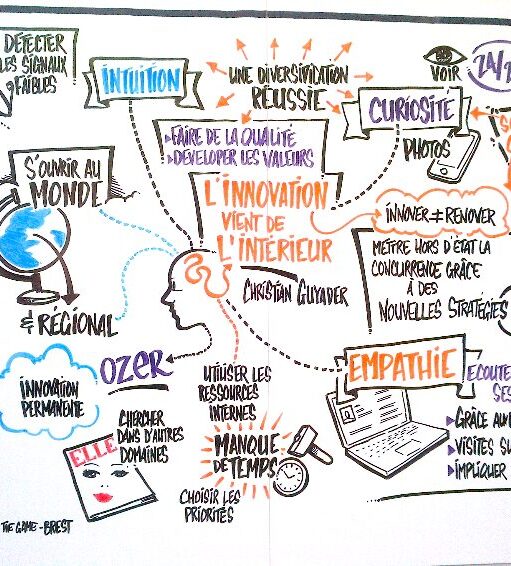 DÉTECTER
LES SIGNAUX
FAIBLES
INTUITION
UNE DIVERSIVICATION
RÉUSSIE
VOIR
CURIOSITÉ
PHOTOS
FAIRE DE LA QUALITÉ
DEVELOPER LES VALEURS
S'OUVRIR AU
MONDE
& RÉGIONAL
L'INNOVATION
VIENT DE
L'INTÉRIEUR
CHRISTIAN GUYADER
INNOVER ≠ RENOVER
METTRE HORS D'ÉTAT LA
CONCURRENCE GRÂCE
À DES
NOUVELLES STRATÉGIES
INNOVATION
PERMANENTE
OZER
CHERCHER
DANS D'AUTRES
DOMAINES
ELLE
UTILISER LES
RESSOURCES
INTERNES
MANQUE
DE TEMPS
CHOISIR LES
PRIORITÉS
EMPATHIE
ECOUTE
SES
GRÂCE AUX
VISITES SU
IMPLIQUER
THE GAME - BREST